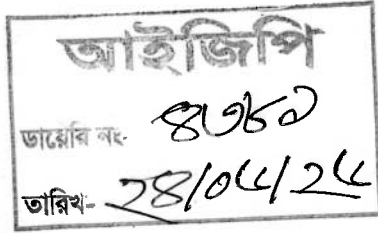 আইজিপি
ডায়েরি নং- ৪৩৮৯
তারিখ- ২৪/০৫/২৫